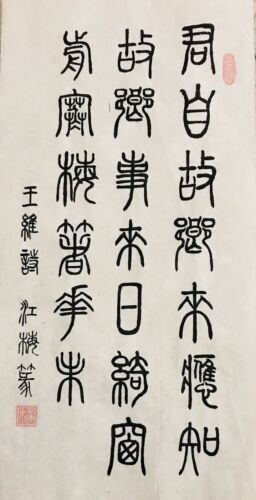 君自故鄉來應知
故鄉事來日綺窗
前寒梅著花未
王維詩 江梅篆